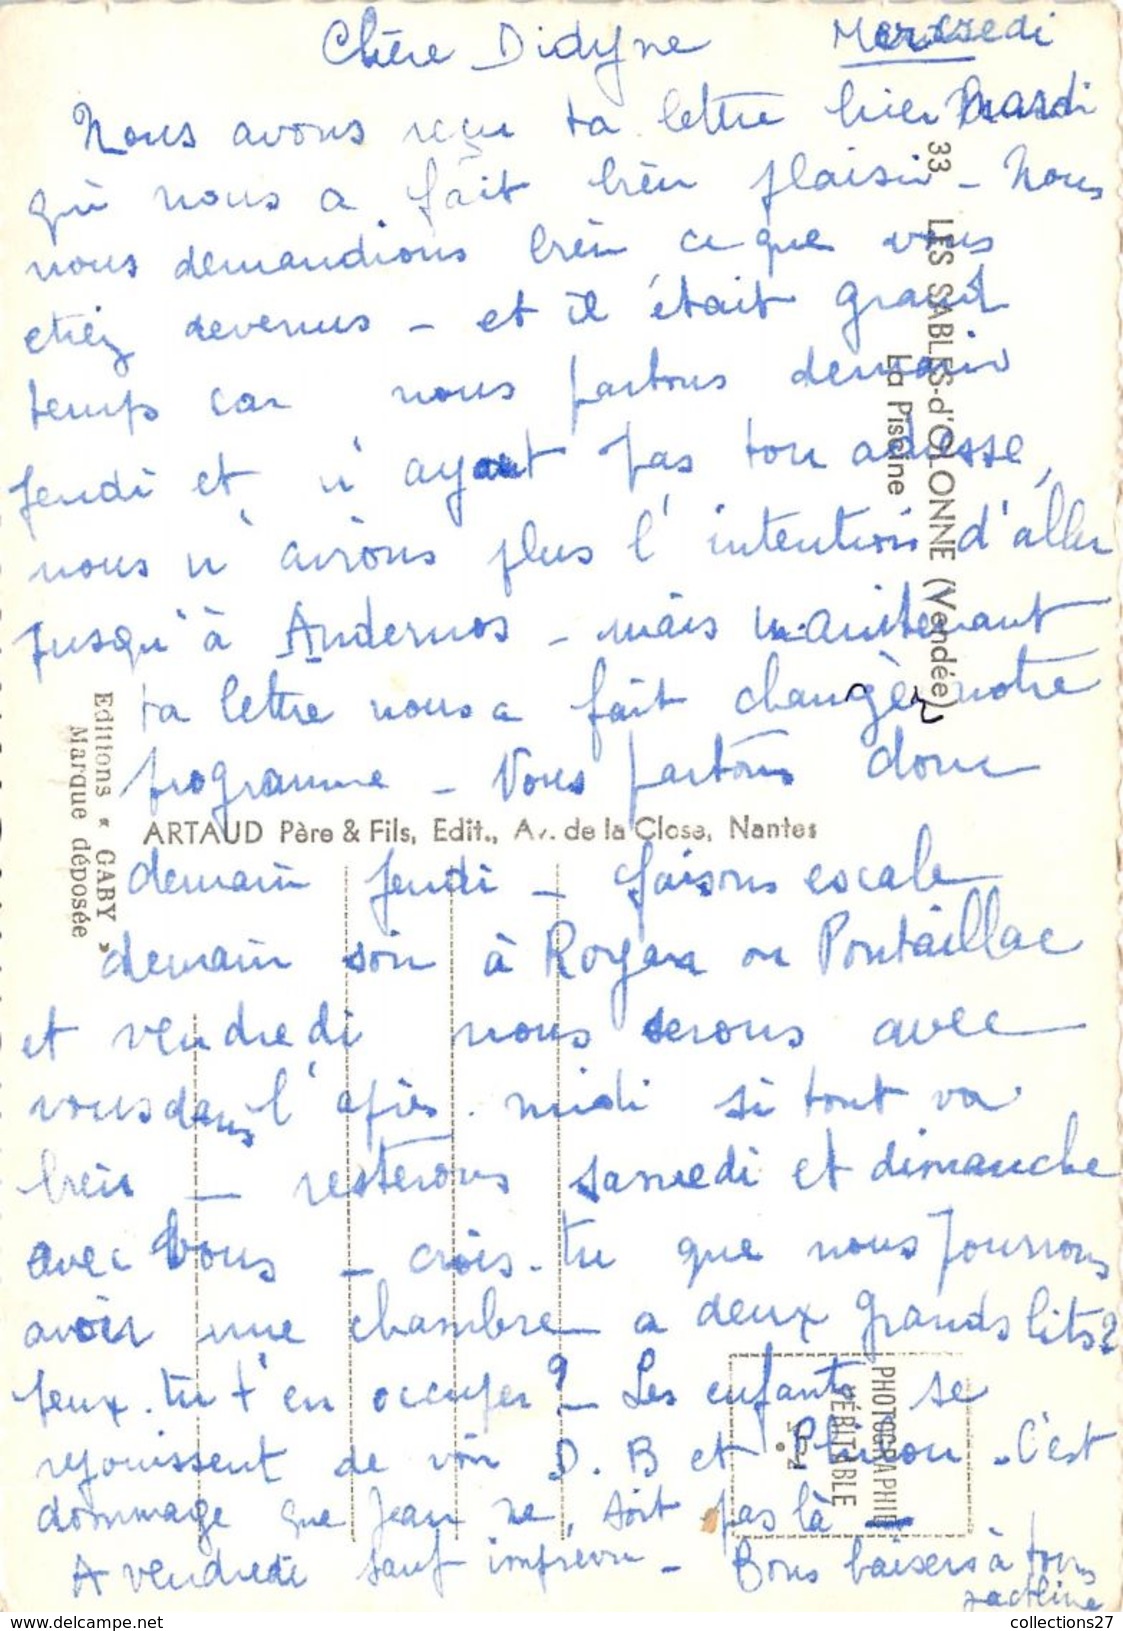 Chère Didyne Mercredi
Nous avons reçu ta lettre hier Mardi
qui nous a fait bien plaisir - Nous
nous demandions bien ce que vous
étiez devenus - et il était grand
temps car nous partons demain
Jeudi et n'ayant pas ton adresse,
nous n'avions plus l'intention d'aller
jusqu'à Andernos - mais maintenant
ta lettre nous a fait changer notre
programme - Nous partons donc
demain Jeudi - faisons escale
demain soir à Royan ou Pontaillac
et vendredi nous serons avec
vous dans l'après-midi si tout va
bien - resterons samedi et dimanche
avec vous - crois-tu que nous pourrons
avoir une chambre a deux grands lits?
peux-tu t'en occuper? - Les enfants se
rejouissent de voir D. B et - C'est
dommage que Jean ne soit pas là
A vendredi sauf imprévu - Bons baisers à tous
Jacqueline
33 LES SABLES-d'OLONNE (Vendée)
La Piscine
Editions « GABY »
Marque déposée
ARTAUD Père & Fils, Edit., Av. de la Close, Nantes
PHOTOGRAPHIE
VÉRITABLE
collections27